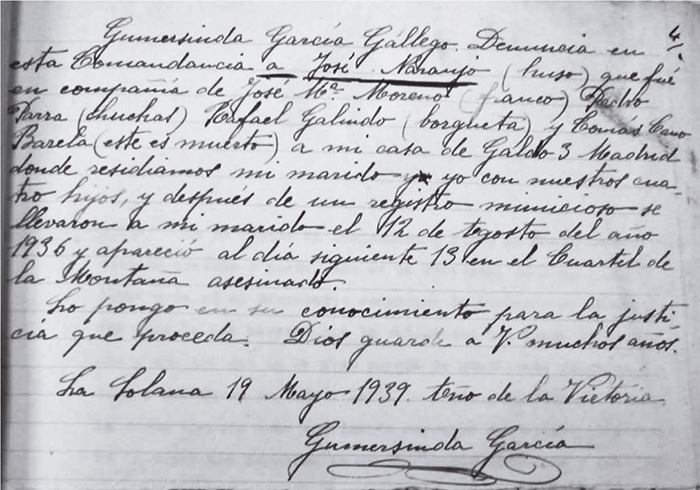 4/.
Gumersinda García Gállego. Denuncia en
esta Comandancia a José Naranjo (huso) que fué
en compañía de José Mª Moreno (franco) Pedro
Parra (chuchas) Rafael Galindo (borgueta) y Tomás Cano
Barela (este es muerto) a mi casa de Galdo 3 Madrid
donde residiamos mi marido y yo con nuestros cua-
tro hijos, y después de un registro municioso se
llevaron a mi marido el 12 de Agosto del año
1936 y apareció al día siguiente 13 en el Cuartel de
la Montaña asesinado.
Lo pongo en su conocimiento para la justi
cia que proceda. Dios guarde a V. muchos años.
La Solana 19 Mayo 1939. Año de la Victoria.
Gumersinda García